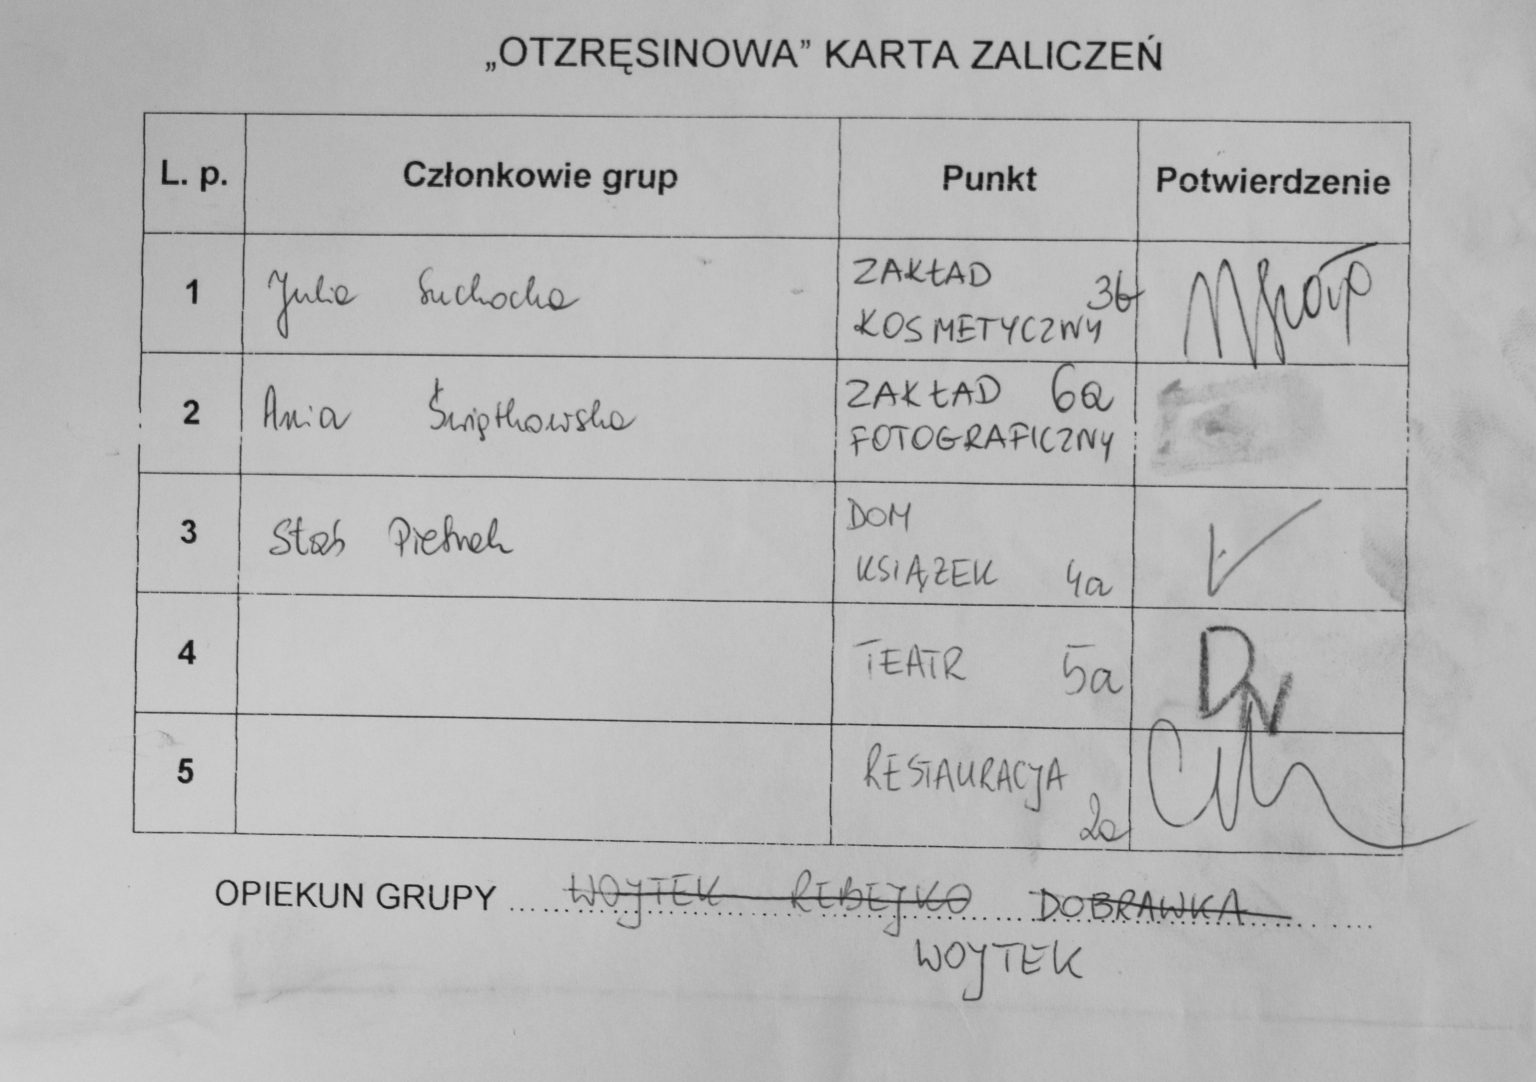 „OTZRĘSINOWA” KARTA ZALICZEŃ
L. p. Członkowie grup Punkt Potwierdzenie
1 Julia Suchocka ZAKŁAD 3b
KOSMETYCZNY
2 Ania Świątkowska ZAKŁAD 6a
FOTOGRAFICZNY
3 Staś Pietrek DOM
KSIĄŻEK 4a
4 TEATR 5a DN
5 RESTAURACJA
2a
OPIEKUN GRUPY WOJTEK REBEJKO DOBRAWKA
WOJTEK